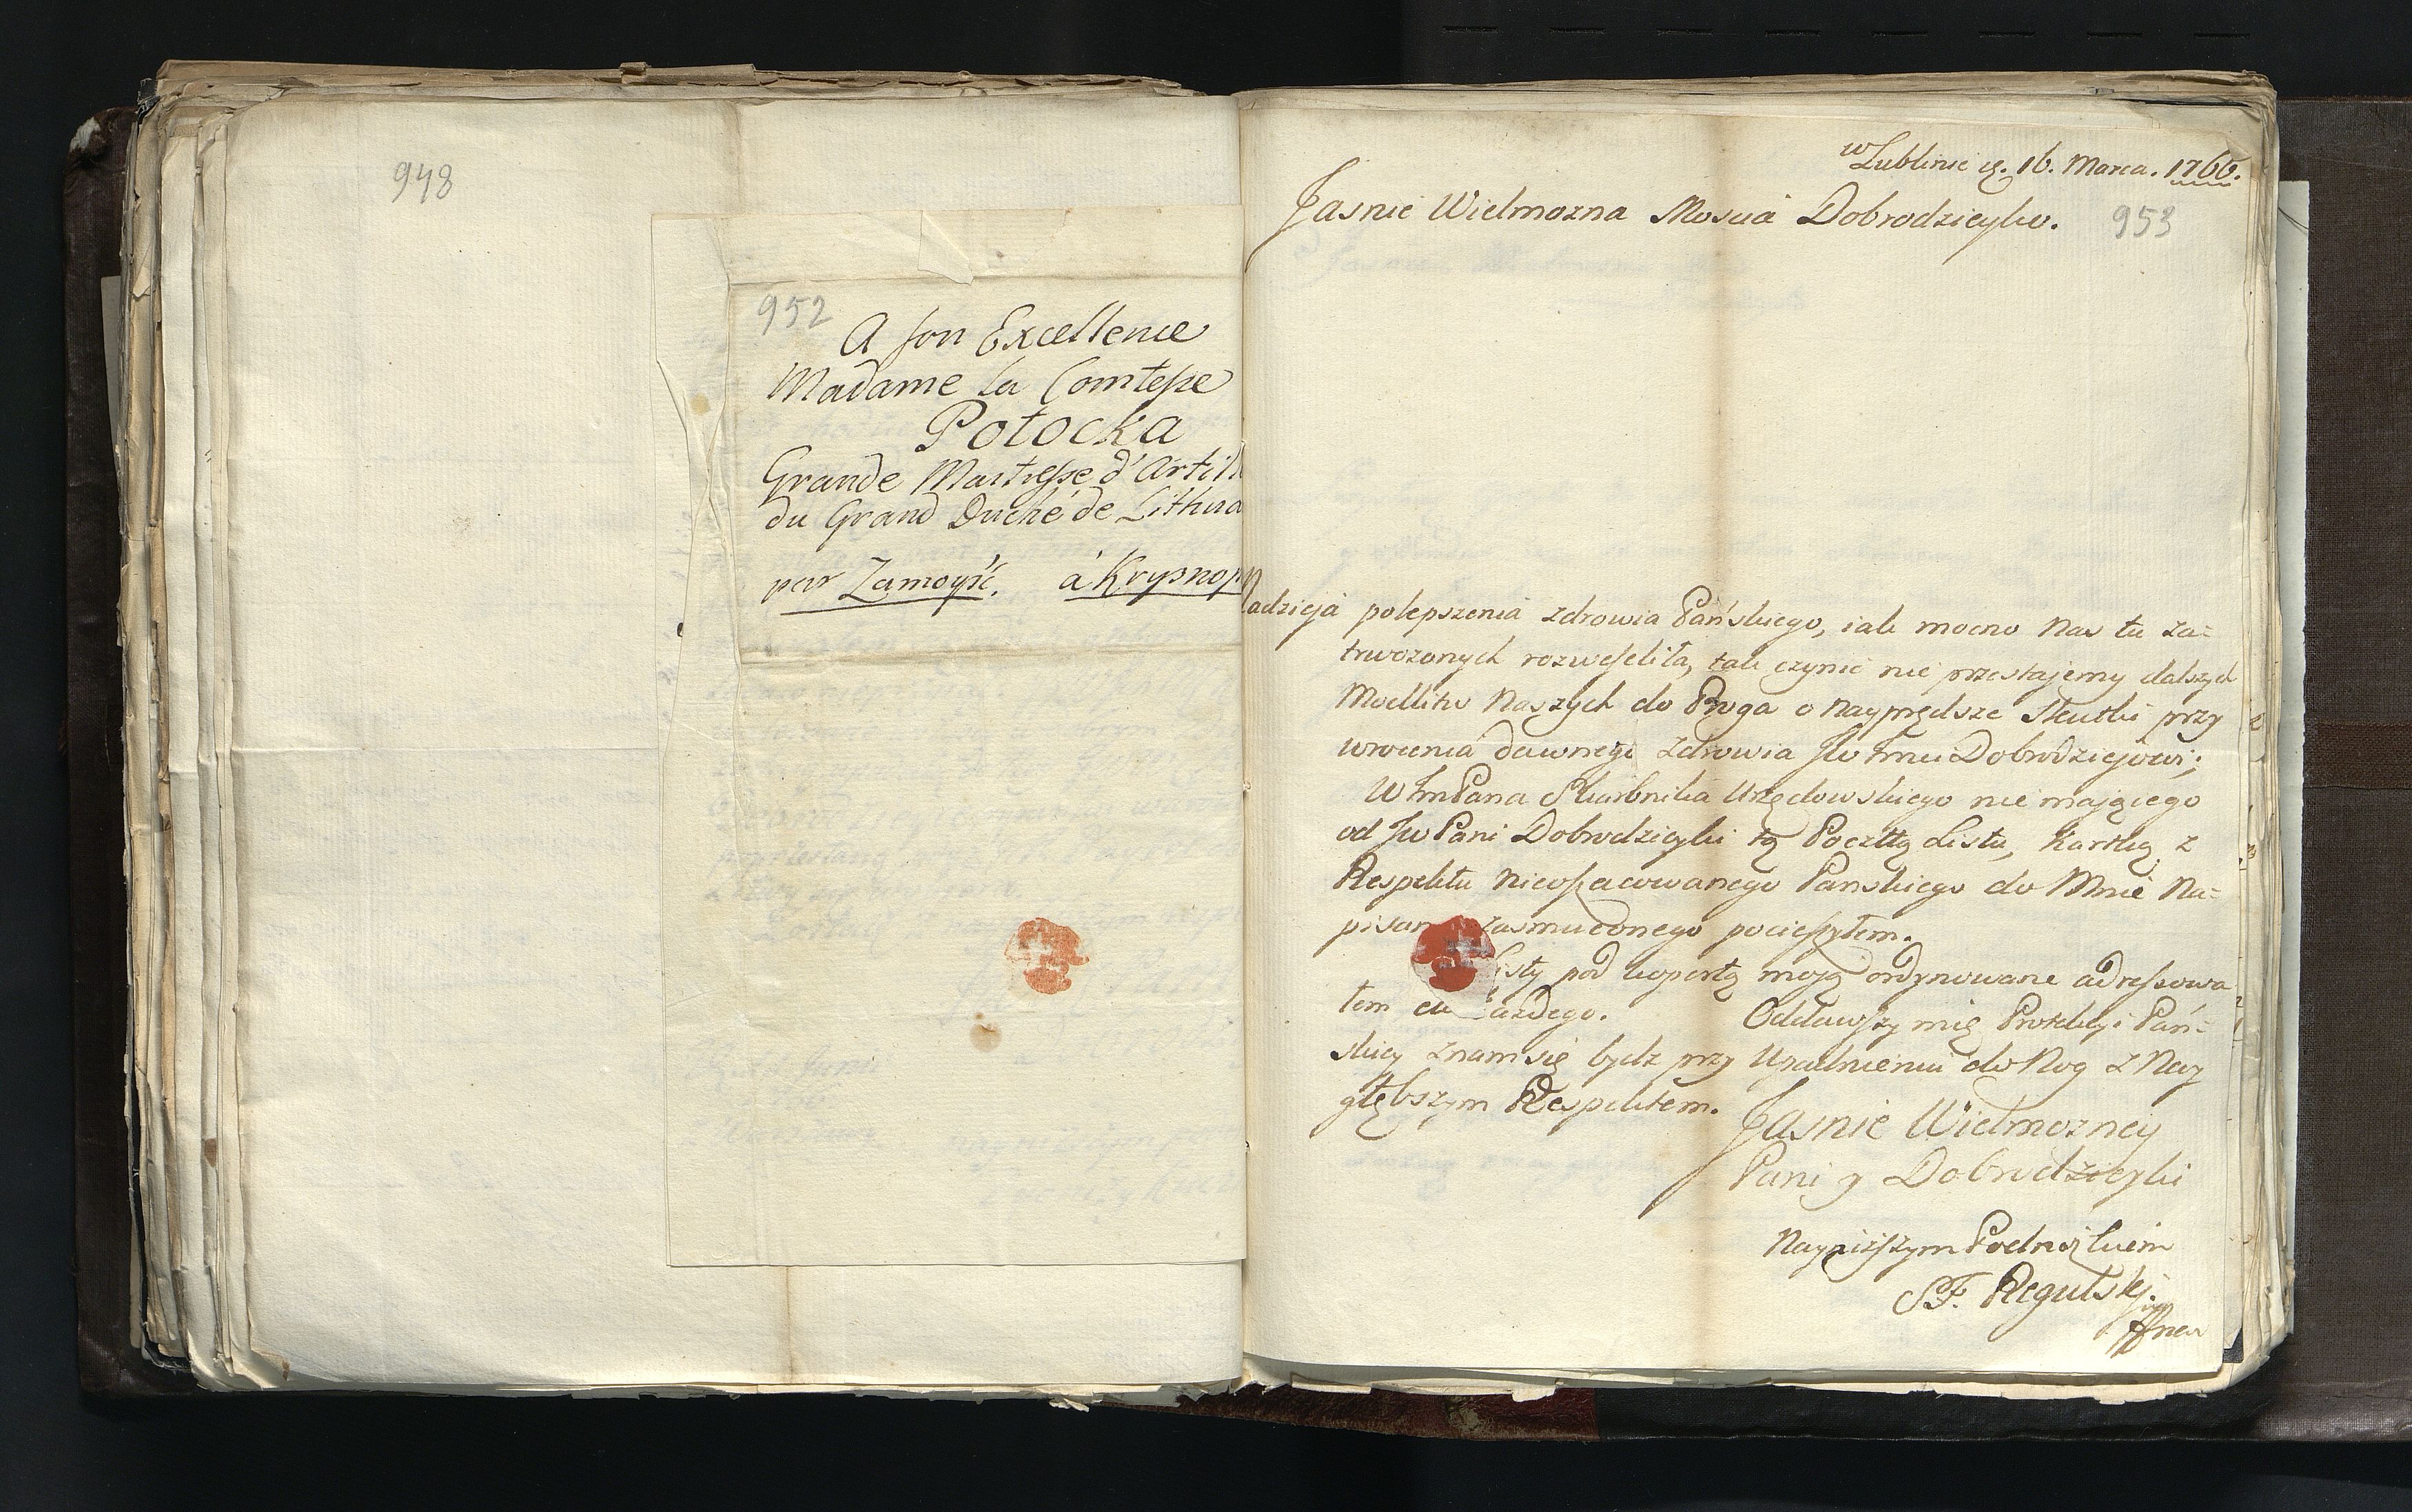 948
952
A son Excellence
Madame la Comtesse
Potocka
Grande Maitresse d'Artill
du Grand Duché de Lithua
par Zamoyść. à Krysnop
w Lublinie 16. Marca. 1766.
Jasnie Wielmozna Moscia Dobrodzieyko.
953
Nadzieja polepszenia zdrowia Pańskiego, iak mocno Nas tu za-
trwozonych rozweseliła, tak czynić nie przestajemy dalszych
Modlitw Naszych do Boga o nayprędsze skutki przy
wrocenia dawnego zdrowia Jw Jmci Dobrodziejowi;
W ImPana Skarbnika Urzędowskiego nie mającego
od Jw Pani Dobrodzieyki tą Pocztą Listu, kartką z
Respektu nieoszacowanego Panskiego do Mnie Na-
pisan zasmuconego pocieszyłem.
isty pod kopertą moją ordynowane adressowa
łem każdego. Oddawszy mię Protekcyi Pań-
skiey znam się bydz przy Upadnieniu do Nog z Nay
głębszym Respektem.
Jasnie Wielmozney
Pani y Dobrodzieyki
Nayniższym Podnożkiem
F. Regulski